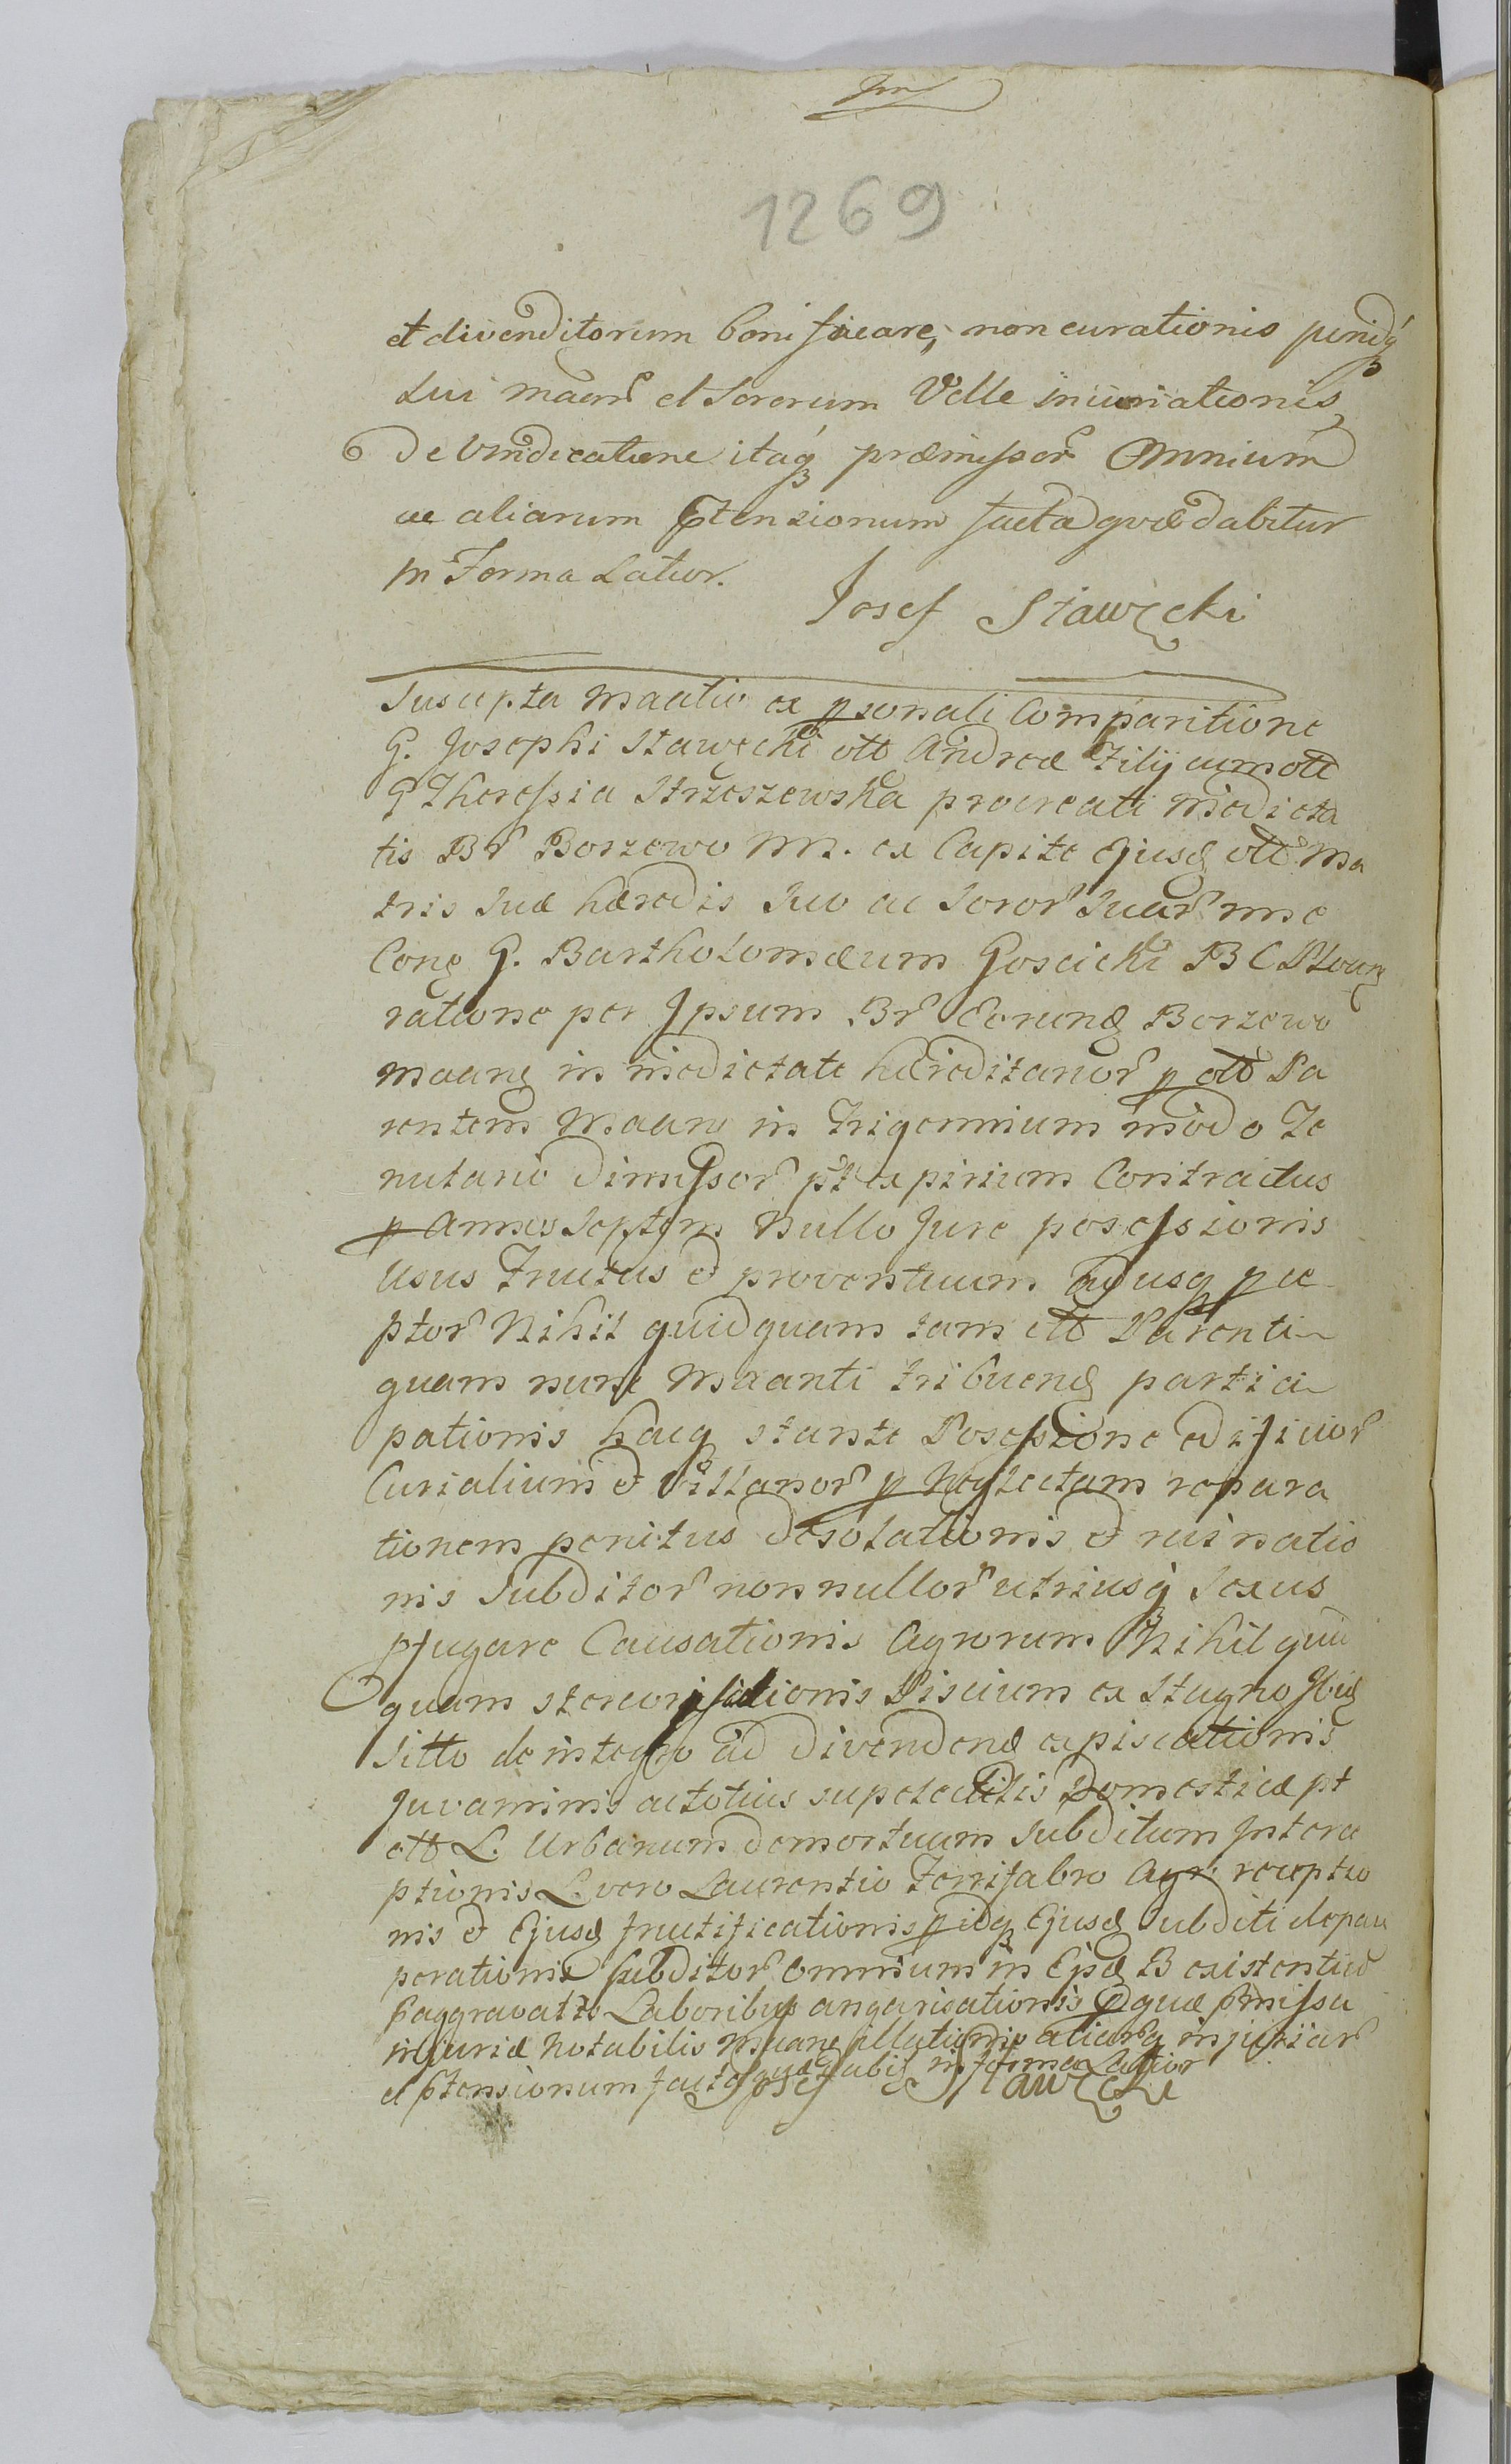 1269
et divenditorum bonificare, non curationis perindq
Sui maenr et Sororum Velle iniuriationis
De Vindicatione itaq praemissor Omnium
ac aliarum ptensionum facta qvae dabitur
in Forma Latior.
Josef Stawęcki
Suscepta Maatio ex psonali Comparitione
G. Josephi Stawęcki ott Andreæ Filij cum ott
G Theressia Strzeszewska procreati medieta
tis Br Borzewo M. ex Capite Ejusd ott Ma
tris Suæ hæredis Suo ac Soror Suar nne
Cong G. Bartholomæum Goscicki B C Plocen
ratione per Ipsum Br Eorund Borzewo
maang in medietate hæreditarior p ott Pa
rentem Maan in Trigennium modo Te
nutario dimissor pt expirium Contractus
p annos Septem Nullo Jure possessionis
Usus Fructus et proventuum adusq p ce
ptor Nihil quidquam tam ott Parenti
quam nunc Maanti tribuend partici
pationis hacq stante Possessione ædificior
Curialium et Villanor p Neglectam repara
tionem penitus desolationis et ruinatio
nis Subditor nonnullor utriusq Sexus
pfugare Causationis Agrorum Nihil quid
quam stercorisationis Piscium ex Stagno Ibid
Sitto de integro ad divendend expiscationis
Juvaminis ac totius supelectilis Domesticæ pt
ott L. Urbanum demortuum Subditum Interce
ptionis L. vero Laurentio Ferrifabro Agr receptio
nis et Ejusd fructificationis pidq Ejusd Subditi depau
perationis Subditor omnium in Ejsd B existentiu
paggravatis Laboribus angarisationis pquæ pmissa
injuriæ Notabilis Maang illationis aliarq injuriar
et ptensionum facta quæ dabit in forma Latior
Josef Stawęcki